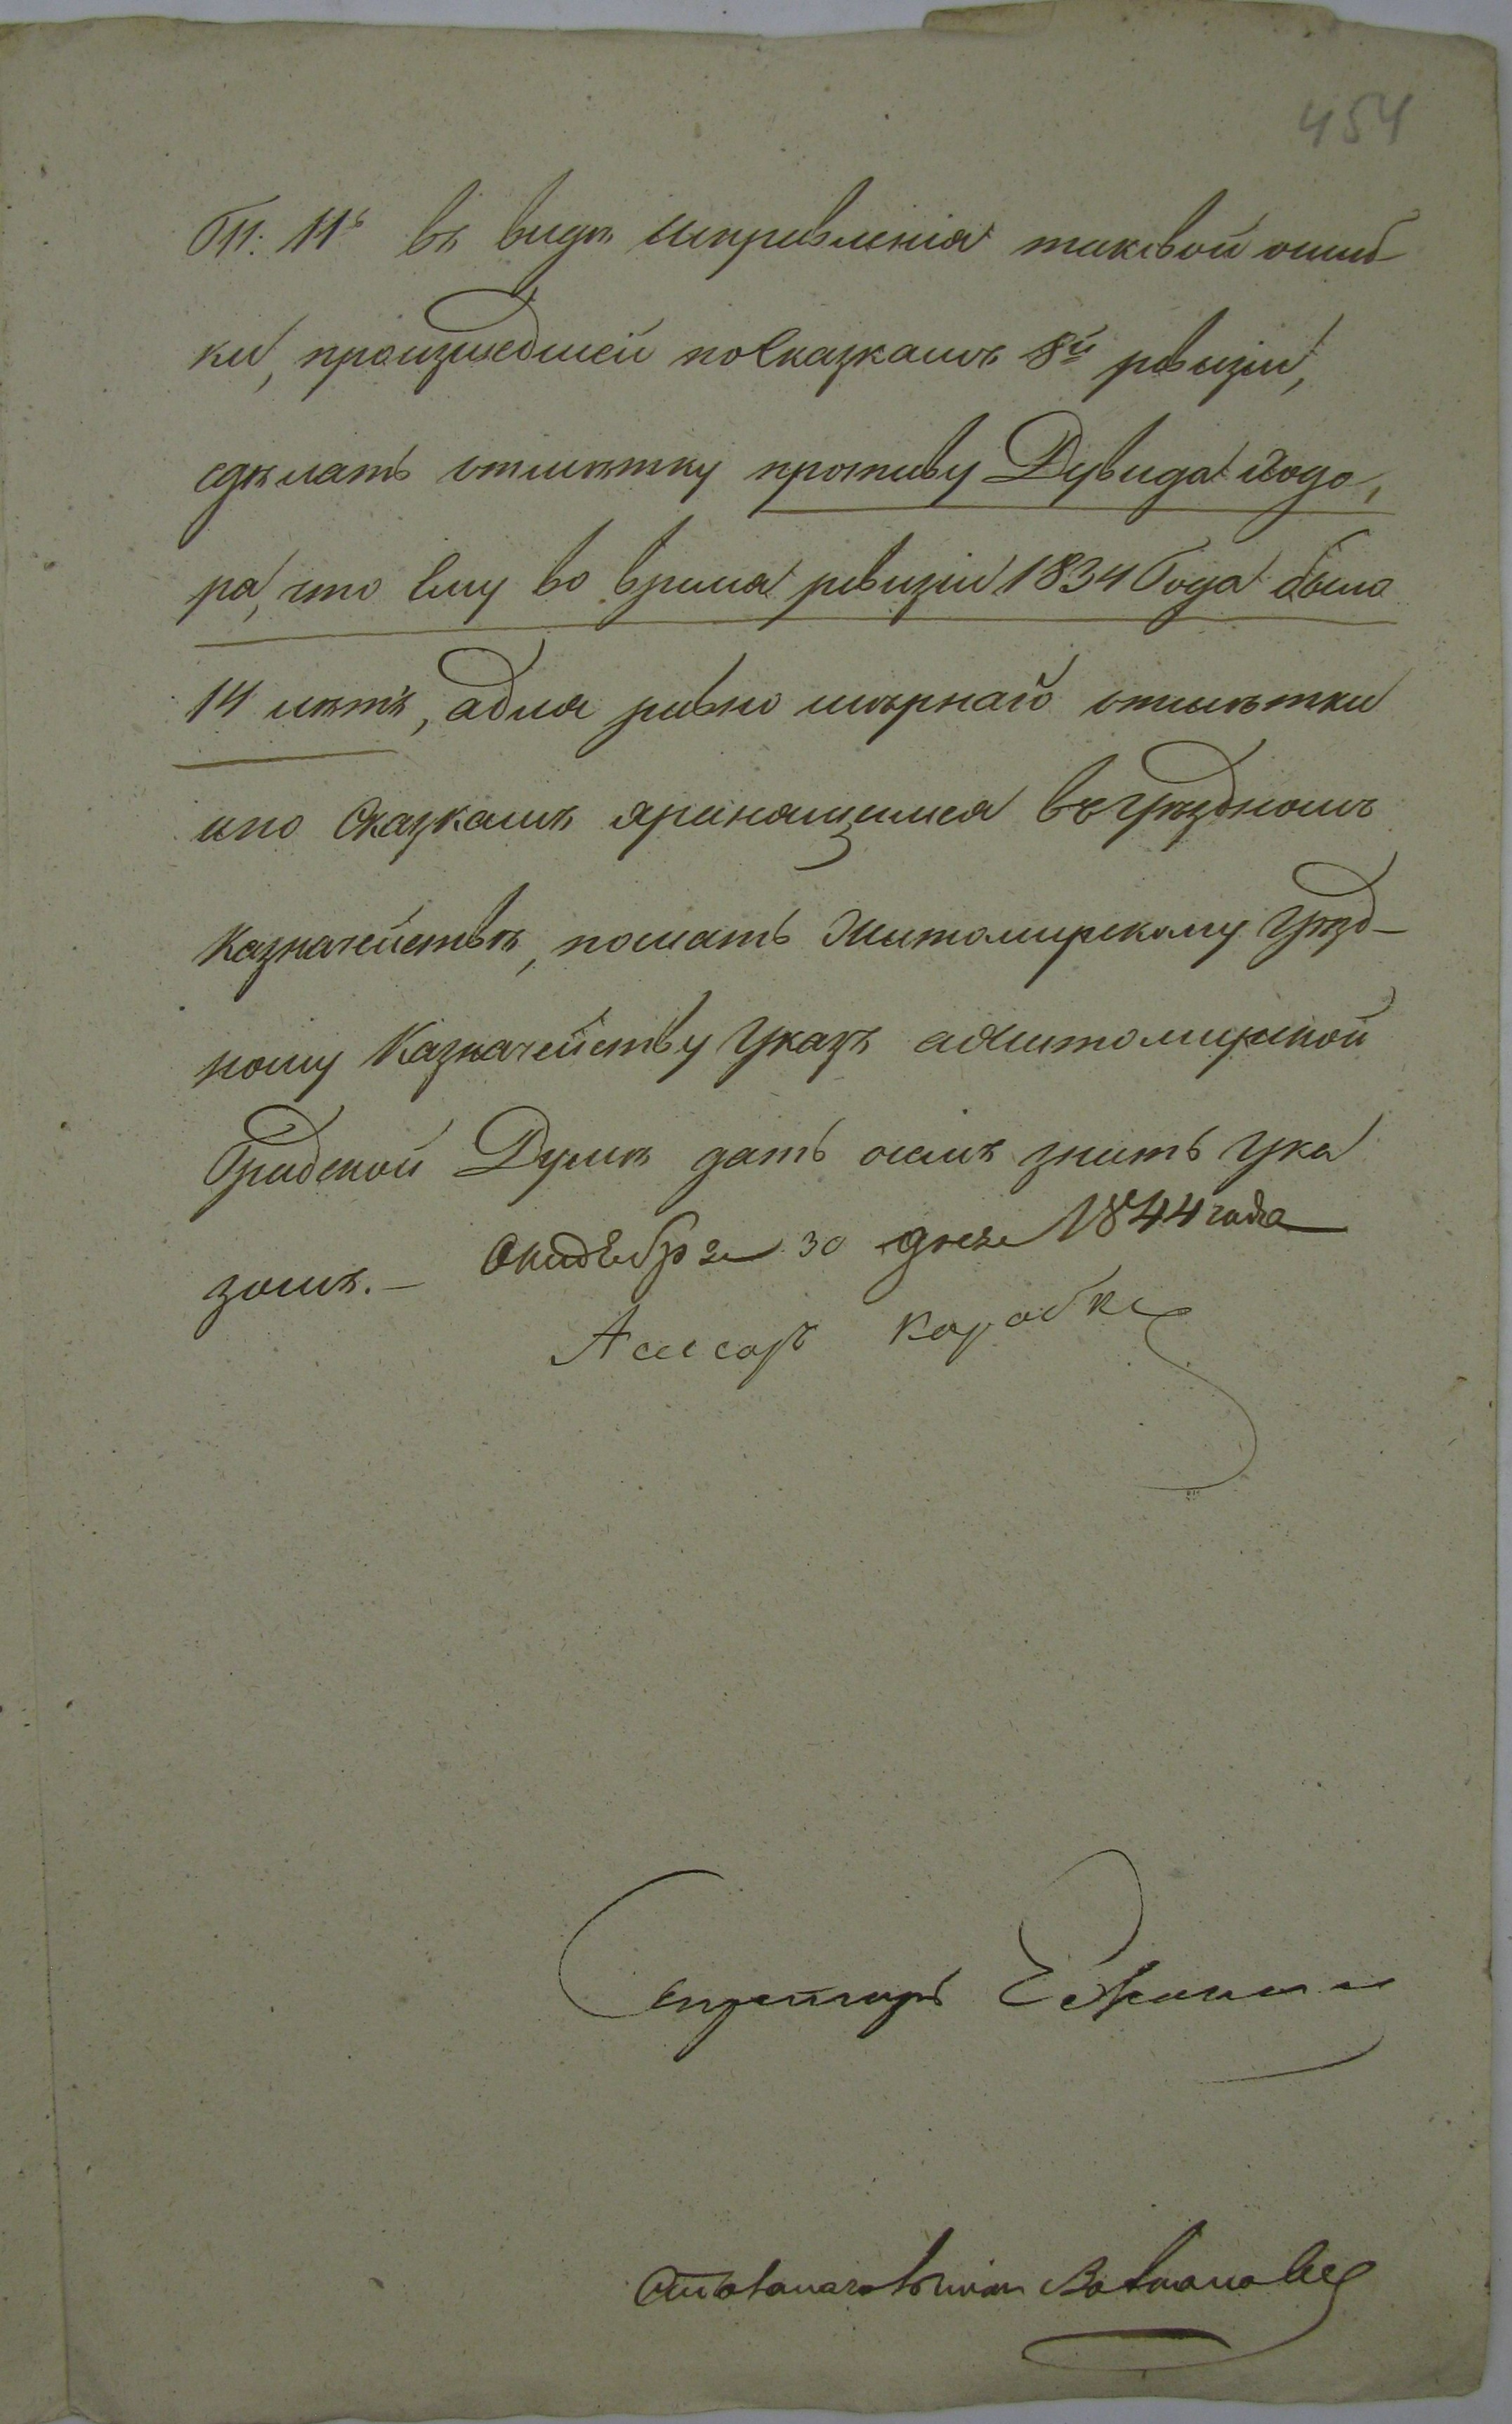 454
въ виде исправленія таковой ошиб
ки, произшедшей по Сказкамъ 8й ревизіи,
сдѣлать отмѣтку противу Дувида Ходо,
ра, что ему во время ревизіи 1834 Года было
14 лѣтъ, а для равно мѣрнаго отмѣтки
и по Сказкамъ хранящимся въ Уѣздномъ
Казначействѣ, послать Житомирскому Уѣзд-
ному Казначейству Указъ а Житомирской
Градской Думѣ дать о семъ знать Ука
зомъ. — Октебря 30 дня 1844 года
Асесоръ Коробка
Секретарь
Столоначальникъ